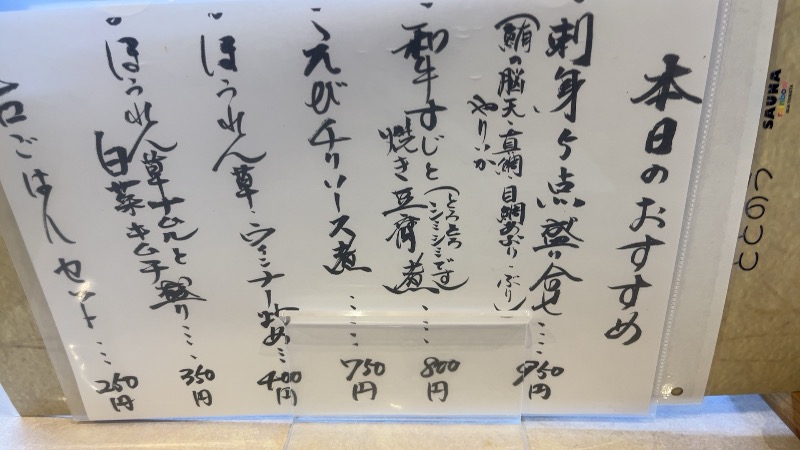 本日のおすすめ
刺身5点盛り合せ‥‥ 950円
(鮪の脳天 真鯛 目鯛あぶり・ぶり
やりいか)
和牛すじと(とろとろ
シミシミです)
焼き豆腐煮‥‥ 800円
えびチリソース煮‥‥ 750円
ほうれん草・ウィンナー炒め‥ 400円
ほうれん草ナムルと
白菜キムチ盛り‥‥ 350円
ごはんセット‥‥ 250円
SAUNA